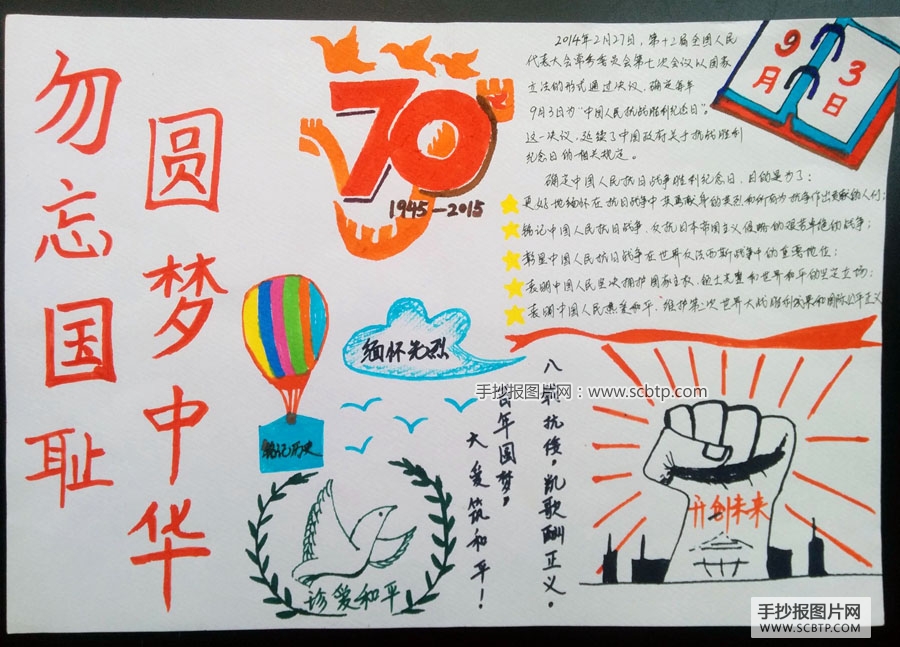 勿忘国耻
圆梦中华
70
1945-2015
2014年2月27日，第十二届全国人民
代表大会常务委员会第七次会议以国家
立法的形式通过决议，确定每年
9月3日为“中国人民抗战胜利纪念日”。
这一决议，延续了中国政府关于抗战胜利
纪念日的相关规定。
确定中国人民抗日战争胜利纪念日，目的是为了：
更好地缅怀在抗日战争中英勇献身的英烈和所有为抗争作出贡献的人们；
铭记中国人民抗日战争、反抗日本帝国主义侵略的艰苦卓绝的战争；
彰显中国人民抗日战争在世界反法西斯战争中的重要地位；
表明中国人民坚决捍护国家主权、领土完整和世界和平的坚定立场；
表明中国人民热爱和平，维护第二次世界大战胜利成果和国际公平正义
9月
3日
缅怀先烈
铭记历史
珍爱和平
八载抗倭，凯歌酬正义。
百年圆梦，
大爱筑和平！
开创未来
手抄报图片网：www.scbtp.com
手抄报图片网
WWW.SCBTP.COM